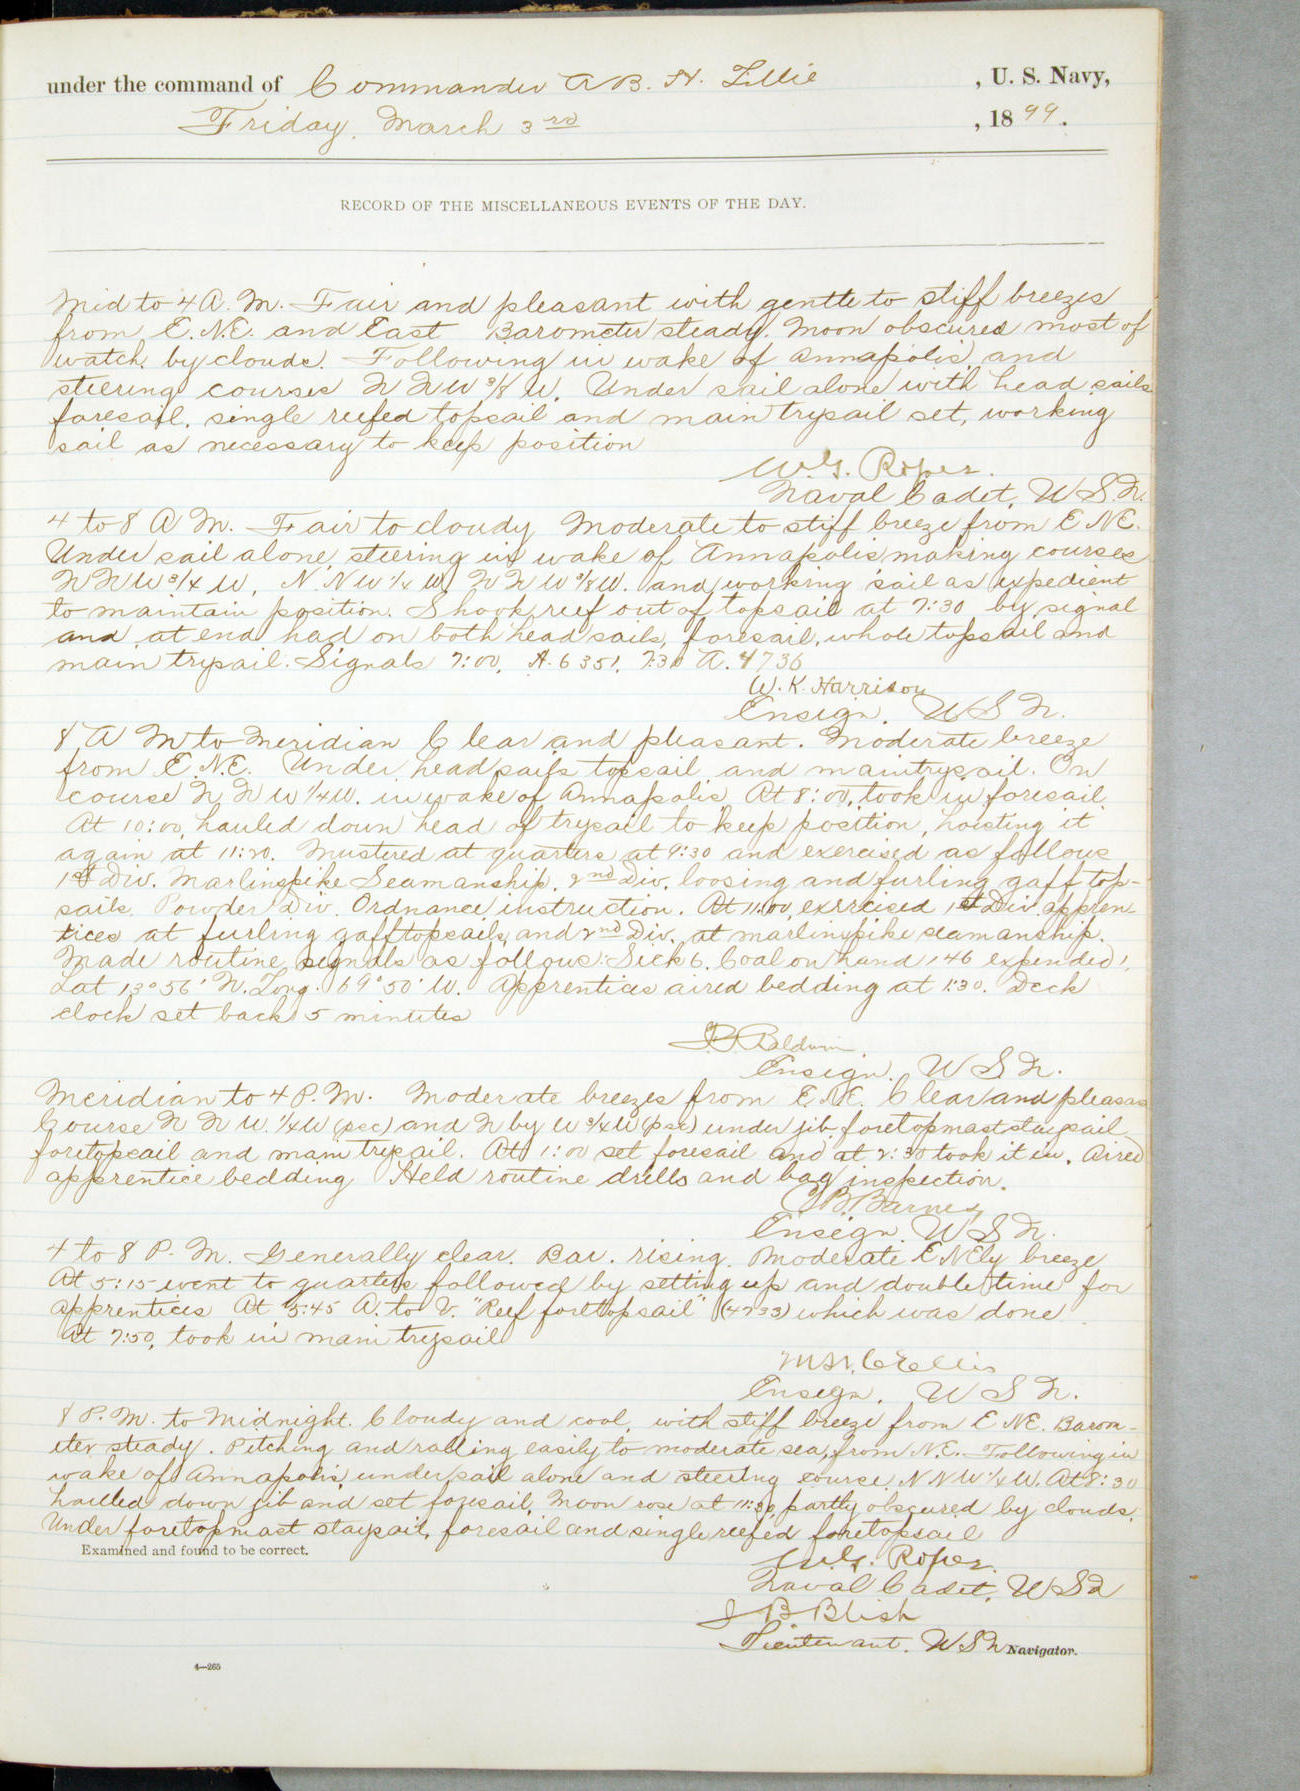 under the command of Commander A. B. H. Lillie , U. S. Navy,
Friday, March 3rd , 1899.
RECORD OF THE MISCELLANEOUS EVENTS OF THE DAY.
Mid to 4 A. M. Fair and pleasant with gentle to stiff breezes
from E.N.E. and East Barometer steady. Moon obscured most of
watch by clouds. Following in wake of Annapolis, and
steering courses N N W 3/8 W. Under sail alone with head sails
foresail, single reefed topsail and main trysail set, working
sail as necessary to keep position
W. G. Roper.
Naval Cadet, U S N.
4 to 8 A M. Fair to cloudy Moderate to stiff breeze from E NE.
Under sail alone, steering in wake of Annapolis making courses
N N W 3/4 W, N. N W 1/4 W, N N W 3/8 W. and working sail as expedient
to maintain position. Shook reef out of topsail at 7:30 by signal
and at end had on both head sails, foresail, whole topsail and
main trysail. Signals 7:00, A. 6351, 7:30 A. 4736
W. K. Harrison
Ensign, U S N.
8 A M to Meridian Clear and pleasant. Moderate breeze
from E.N.E. Under head sails topsail and main trysail. On
course N N W 1/4 W. in wake of Annapolis At 8:00, took in foresail.
At 10:00, hauled down head of trysail to keep position, hoisting it
again at 11:20. Mustered at quarters at 9:30 and exercised as follows
1st Div. Marlinspike Seamanship, 2nd Div. loosing and furling gaff top-
sails, Powder Div. Ordnance instruction. At 11:00, exercised 1st Div appren
tices at furling gafftopsails, and 2nd Div. at marlinspike seamanship.
Made routine signals as follows: Sick 6, Coal on hand 146 expended 1,
Lat 13° 56' N. Long. 69° 50' W. Apprentices aired bedding at 1:30. Deck
clock set back 5 minutes
Baldwin
Ensign. U S N.
Meridian to 4 P.M. Moderate breezes from E.NE. Clear and pleasan
Course N N W. 1/4 W (psc) and N by W 3/4 W (psc) under jib, foretopmast staysail
foretopsail and main trysail. At 1:00 set foresail and at 2:30 took it in. Aired
apprentice bedding Held routine drills and bag inspection.
C B. Barnes
Ensign. U S N.
4 to 8 P. M. Generally clear. Bar. rising. Moderate E NEly breeze
At 5:15 went to quarters followed by setting up and double time for
apprentices At 5:45 A. to V. "Reef foretopsail" (4733) which was done
At 7:50, took in main trysail
Ellis
Ensign, U S N.
8 P. M. to Midnight. Cloudy and cool with stiff breeze from E NE. Barom-
eter steady. Pitching and rolling easily to moderate sea, from N.E. Following in
wake of Annapolis under sail alone and steering course N N W 1/4 W. At 8:30
hauled down jib and set foresail, Moon rose at 11:30, partly obscured by clouds.
Under foretopmast staysail, foresail and single reefed foretopsail
Examined and found to be correct.
W. G. Roper.
Naval Cadet, U S N
J B. Blish
Lieutenant. U S N Navigator.
4—265